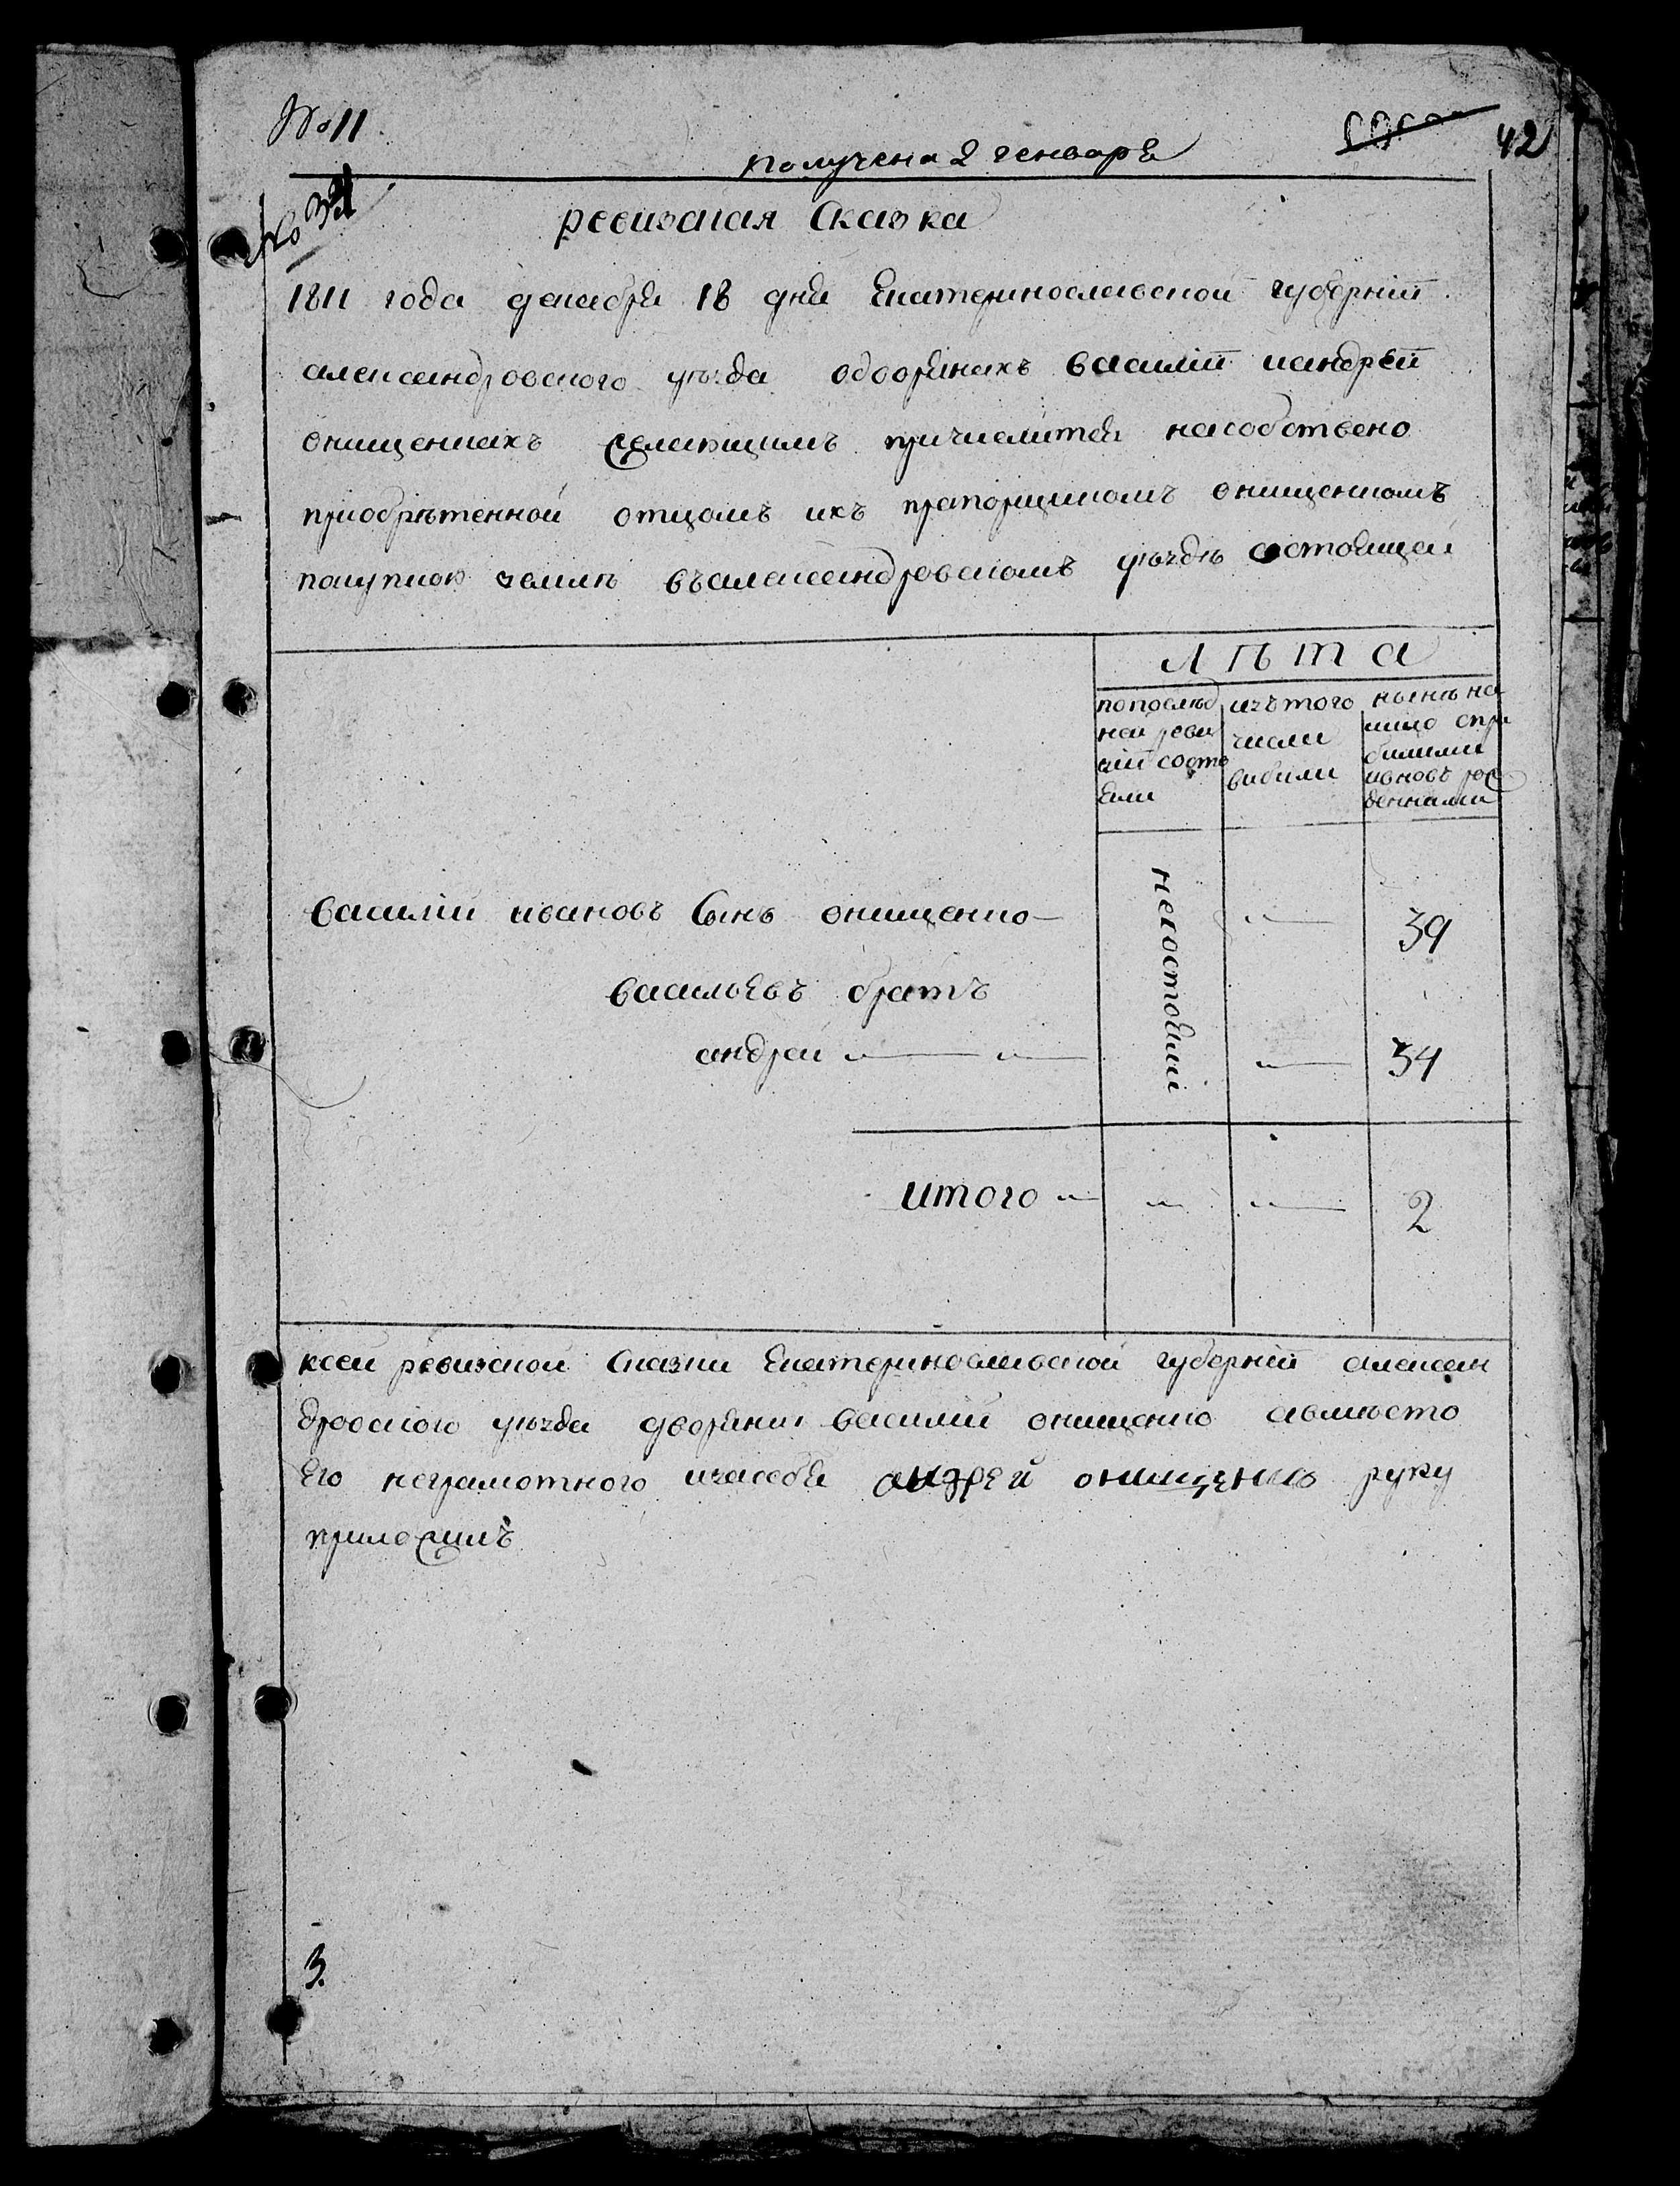 № 11
получена 2 генваря
42
№ 31
ревизская Сказка
1811 года декабря 18 дня Екатеринославской губернїи
александровского уѣзда одворянахъ василїи иандрѣй
онищенкахъ желающимъ причислится насобствено
приобрѣтенной отцомъ ихъ прапорщикомъ онищенкомъ
покупкою землѣ въалександровскомъ уѣздѣ состоящей
лѣта
попослѣд изъ того нынѣ на
ней реви числа лицо спри
зїи состо вибили былими
яли ивновь рож
денными
василїй ивановъ Сынъ онищенко — несостояли — 39
васильевъ братъ
андрей — — — 34
итого — — — 2
ксей ревизской Сказки Екатеринославской губернїи алексан
дровского уѣзда дворянинъ василий онищенко авмѣсто
его неграмотного изасебя андрей онищенко руку
приложилъ
3.